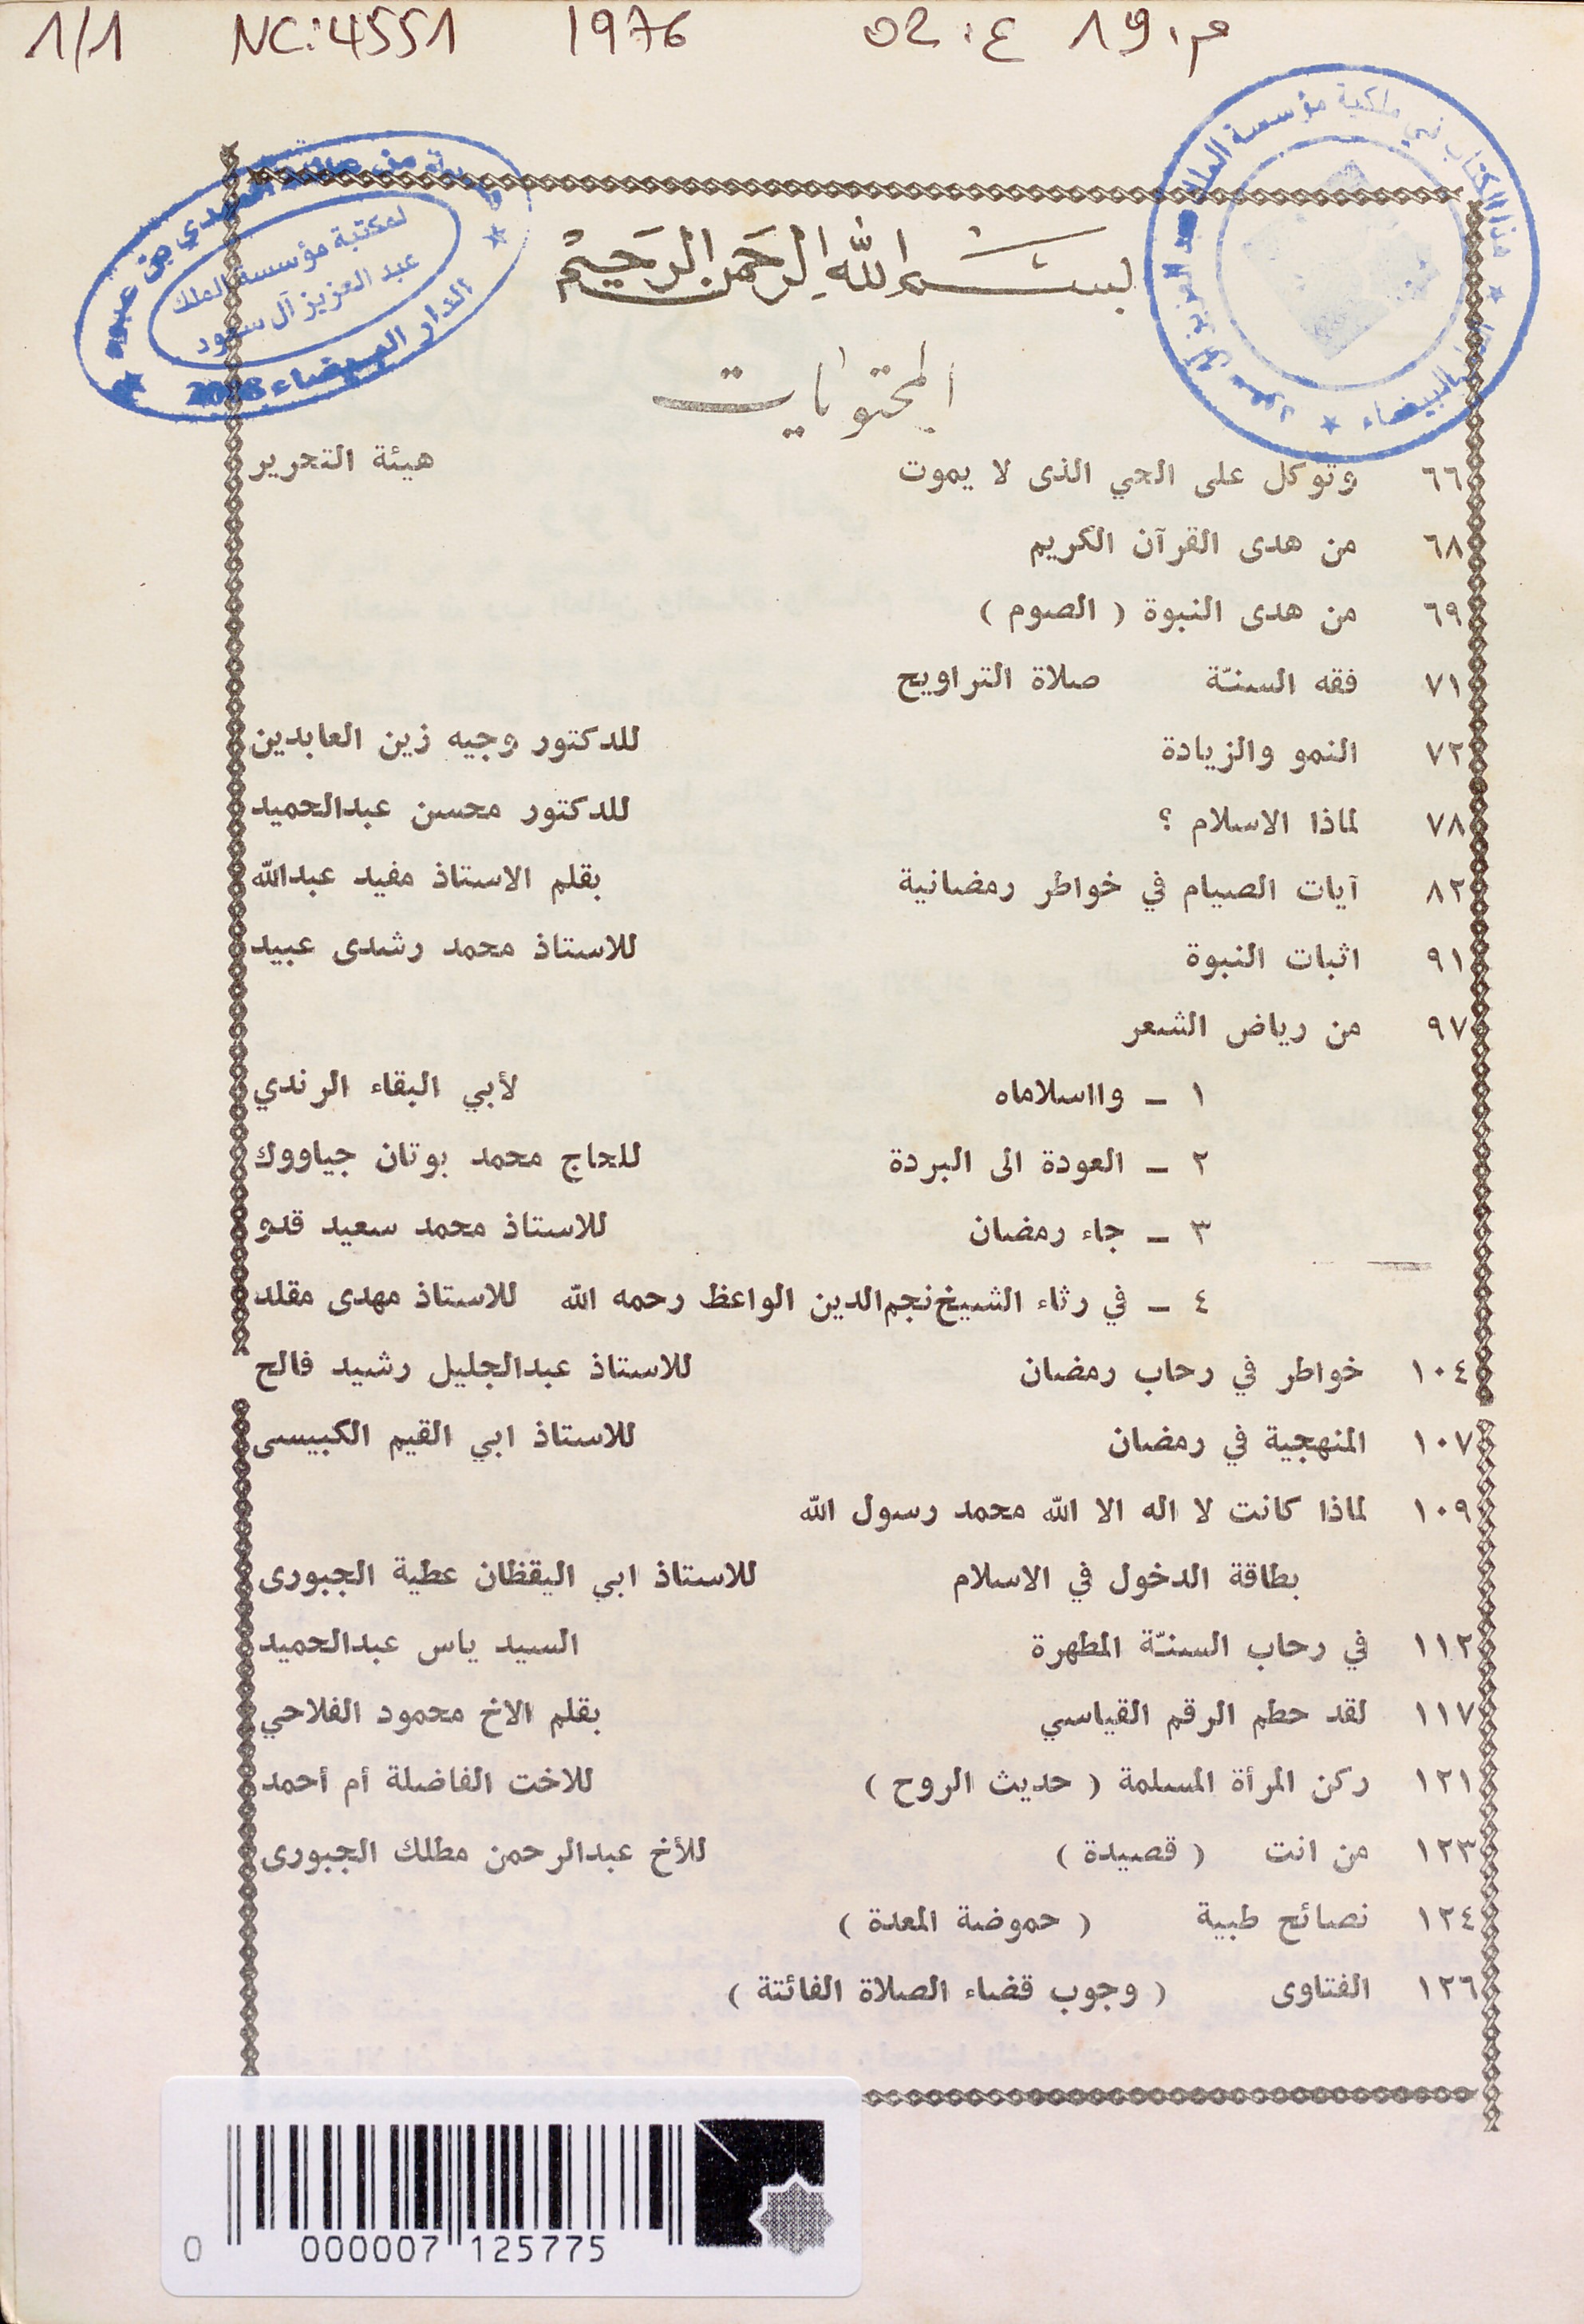 1/1 NC:4551 1976 ع: 02 م: 19
هذا الكتاب في ملكية مؤسسة الملك عبد العزيز آل سعود
الدار البيضاء
لمكتبة مؤسسة الملك
عبد العزيز آل سعود
الدار البيضاء 2008
بسم الله الرحمن الرحيم
المحتويات
٦٦ وتوكل على الحي الذى لا يموت هيئة التحرير
٦٨ من هدى القرآن الكريم
٦٩ من هدى النبوة ( الصوم )
٧١ فقه السنّة صلاة التراويح
٧٢ النمو والزيادة للدكتور وجيه زين العابدين
٧٨ لماذا الاسلام ؟ للدكتور محسن عبدالحميد
٨٢ آيات الصيام في خواطر رمضانية بقلم الاستاذ مفيد عبدالله
٩١ اثبات النبوة للاستاذ محمد رشدى عبيد
٩٧ من رياض الشعر
١ ــ وااسلاماه لأبي البقاء الرندي
٢ ــ العودة الى البردة للحاج محمد بوتان جياووك
٣ ــ جاء رمضان للاستاذ محمد سعيد قدو
٤ ــ في رثاء الشيخ نجم الدين الواعظ رحمه الله للاستاذ مهدى مقلد
١٠٤ خواطر في رحاب رمضان للاستاذ عبدالجليل رشيد فالح
١٠٧ المنهجية في رمضان للاستاذ ابي القيم الكبيسى
١٠٩ لماذا كانت لا اله الا الله محمد رسول الله
بطاقة الدخول في الاسلام للاستاذ ابي اليقظان عطية الجبورى
١١٢ في رحاب السنّة المطهرة السيد ياس عبدالحميد
١١٧ لقد حطم الرقم القياسي بقلم الاخ محمود الفلاحي
١٢١ ركن المرأة المسلمة ( حديث الروح ) للاخت الفاضلة أم أحمد
١٢٣ من انت ( قصيدة ) للأخ عبدالرحمن مطلك الجبورى
١٢٤ نصائح طبية ( حموضة المعدة )
١٢٦ الفتاوى ( وجوب قضاء الصلاة الفائتة )
0 000007 125775